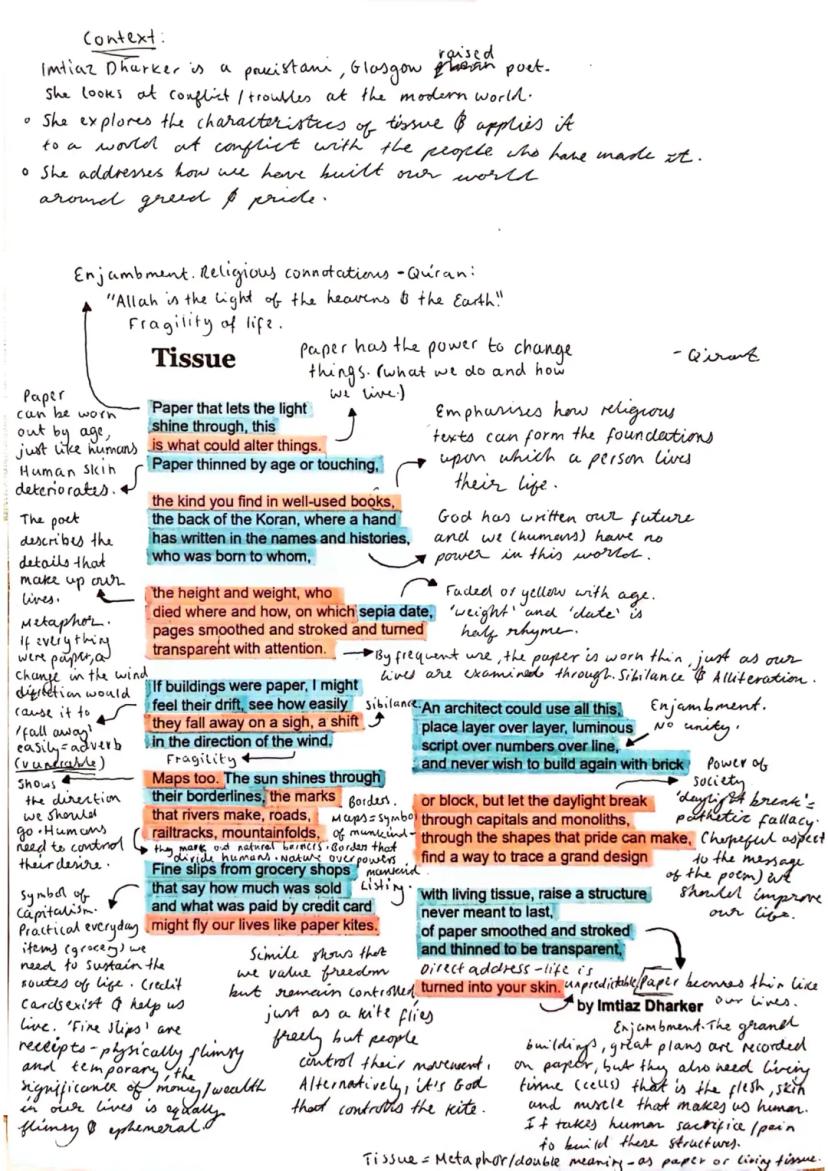 Context:
Imtiaz Dharker is a pakistani, Glasgow raised poet.
She looks at conflict/troubles at the modern world.
She explores the characteristics of tissue & applies it
to a world at conflict with the people who have made it.
She addresses how we have built our world
around greed & pride.
Enjambment. Religious connotations - Qu'ran:
"Allah is the light of the heavens & the Earth."
Fragility of life.
- Q'uran
Tissue
Paper has the power to change
things. (what we do and how
we live.)
Paper
can be worn
out by age,
just like humans
Human skin
deteriorates.
Paper that lets the light
shine through, this
is what could alter things.
Paper thinned by age or touching,
Emphasises how religious
texts can form the foundations
upon which a person lives
their life.
the kind you find in well-used books,
the back of the Koran, where a hand
has written in the names and histories,
who was born to whom,
God has written our future
and we (humans) have no
power in this world.
The poet
describes the
details that
make up our
lives.
the height and weight, who
died where and how, on which sepia date,
pages smoothed and stroked and turned
transparent with attention.
Faded or yellow with age.
'weight' and 'date' is
half rhyme.
By frequent use, the paper is worn thin, just as our
lives are examined through. Sibilance & Alliteration.
Metaphor.
If everything
were paper, a
change in the wind
direction would
cause it to
'fall away'
easily = adverb
(vunerable)
If buildings were paper, I might
feel their drift, see how easily
they fall away on a sigh, a shift
in the direction of the wind.
Sibilance
Fragility
Shows
the direction
we should
go. Humans
need to control
their desire.
Maps too. The sun shines through
their borderlines, the marks
that rivers make, roads,
railtracks, mountainfolds,
Borders.
Maps = symbol
of mankind -
they mark out natural barriers. Border that
divide humans. Nature overpowers
mankind
Listing.
Fine slips from grocery shops
that say how much was sold
and what was paid by credit card
might fly our lives like paper kites.
Symbol of
Capitalism.
Practical everyday
items (grocery) we
need to sustain the
routes of life. Credit
cards exist & help us
live. 'Fine slips' are
receipts - physically flimsy
and temporary, the
significance of money/wealth
in our lives is equally
flimsy & ephemeral.
Simile shows that
we value freedom
but remain controlled
just as a kite flies
freely but people
control their movement.
Alternatively, it's God
that controls the kite.
An architect could use all this,
place layer over layer, luminous
script over numbers over line,
and never wish to build again with brick
Enjambment.
No unity.
or block, but let the daylight break
through capitals and monoliths,
through the shapes that pride can make,
find a way to trace a grand design
Power of
society
'daylight break' =
pathetic fallacy.
(hopeful aspect
to the message
of the poem) we
should improve
our life.
with living tissue, raise a structure
never meant to last,
of paper smoothed and stroked
and thinned to be transparent,
Direct address - life is
unpredictable
turned into your skin.
Paper becomes thin like
our lives.
by Imtiaz Dharker
Enjambment. The grand
buildings, great plans are recorded
on paper, but they also need living
tissue (cells) that is the flesh, skin
and muscle that makes us human.
It takes human sacrifice/pain
to build these structures.
Tissue = Metaphor/double meaning - as paper or living tissue.